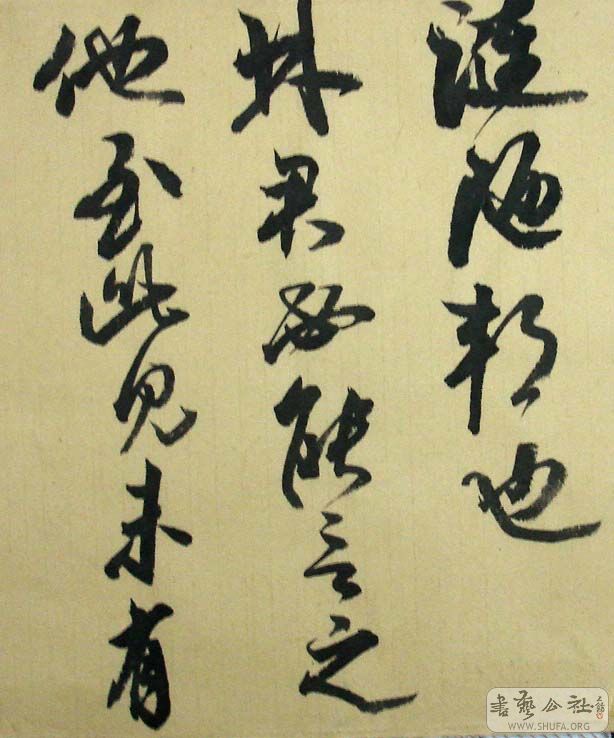 漣陋邦也
林君必能言之
他至此見未有
書藝公社
WWW.SHUFA.ORG